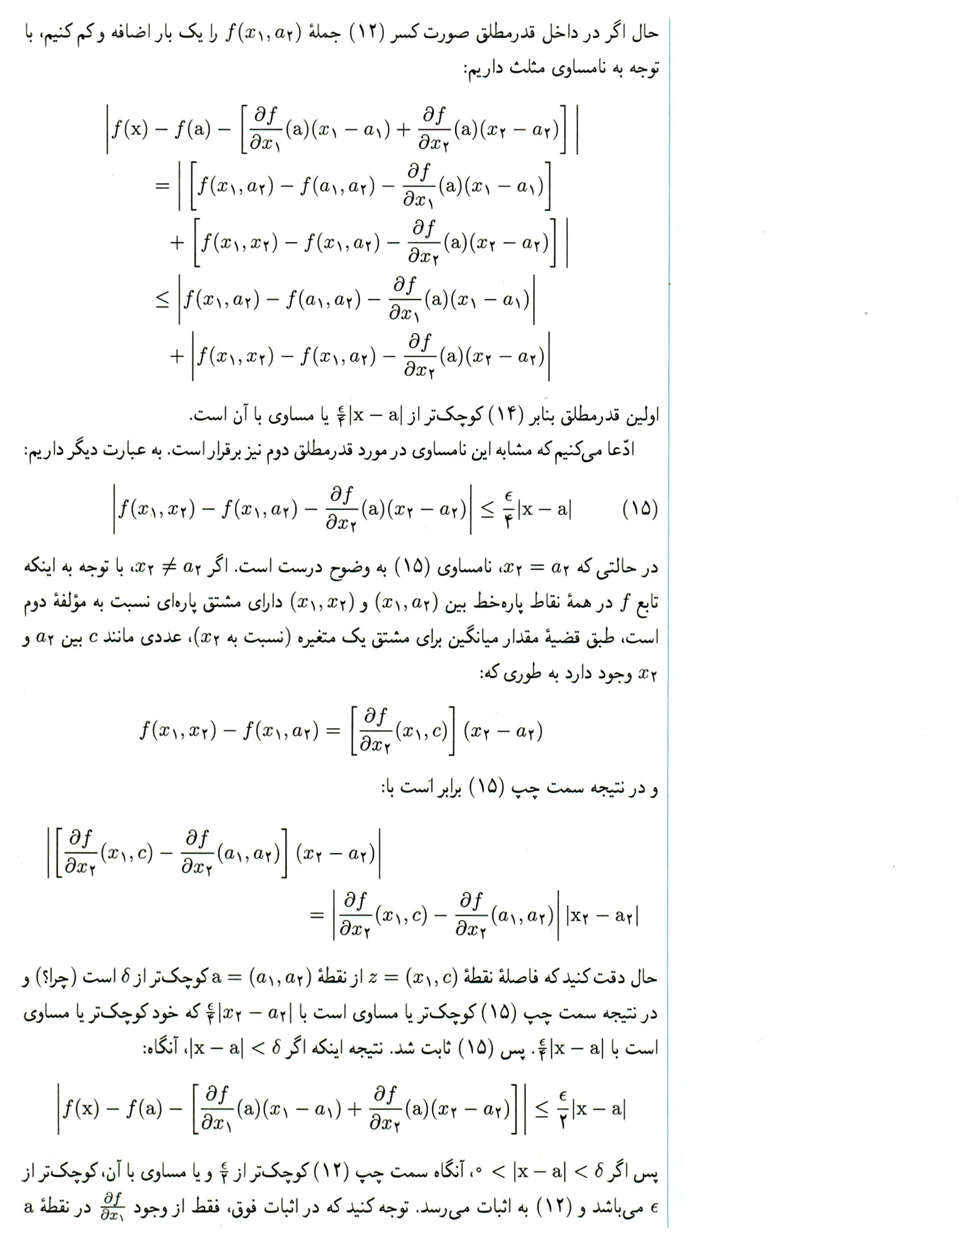 حال اگر در داخل قدرمطلق صورت کسر (۱۲) جملهٔ f(x₁, a₂) را یک بار اضافه و کم کنیم، با
توجه به نامساوی مثلث داریم:
|f(x) − f(a) − [∂f/∂x₁(a)(x₁ − a₁) + ∂f/∂x₂(a)(x₂ − a₂)]|
= |[f(x₁, a₂) − f(a₁, a₂) − ∂f/∂x₁(a)(x₁ − a₁)]
+ [f(x₁, x₂) − f(x₁, a₂) − ∂f/∂x₂(a)(x₂ − a₂)]|
≤ |f(x₁, a₂) − f(a₁, a₂) − ∂f/∂x₁(a)(x₁ − a₁)|
+ |f(x₁, x₂) − f(x₁, a₂) − ∂f/∂x₂(a)(x₂ − a₂)|
اولین قدرمطلق بنابر (۱۴) کوچک‌تر از ϵ/۴|x − a| یا مساوی با آن است.
ادّعا می‌کنیم که مشابه این نامساوی در مورد قدرمطلق دوم نیز برقرار است. به عبارت دیگر داریم:
|f(x₁, x₂) − f(x₁, a₂) − ∂f/∂x₂(a)(x₂ − a₂)| ≤ ϵ/۴|x − a| (۱۵)
در حالتی که x₂ = a₂، نامساوی (۱۵) به وضوح درست است. اگر x₂ ≠ a₂، با توجه به اینکه
تابع f در همهٔ نقاط پاره‌خط بین (x₁, a₂) و (x₁, x₂) دارای مشتق پاره‌ای نسبت به مؤلفهٔ دوم
است، طبق قضیهٔ مقدار میانگین برای مشتق یک متغیره (نسبت به x₂)، عددی مانند c بین a₂ و
x₂ وجود دارد به طوری که:
f(x₁, x₂) − f(x₁, a₂) = [∂f/∂x₂(x₁, c)] (x₂ − a₂)
و در نتیجه سمت چپ (۱۵) برابر است با:
|[∂f/∂x₂(x₁, c) − ∂f/∂x₂(a₁, a₂)] (x₂ − a₂)|
= |∂f/∂x₂(x₁, c) − ∂f/∂x₂(a₁, a₂)| |x₂ − a₂|
حال دقت کنید که فاصلهٔ نقطهٔ z = (x₁, c) از نقطهٔ a = (a₁, a₂) کوچک‌تر از δ است (چرا؟) و
در نتیجه سمت چپ (۱۵) کوچک‌تر یا مساوی است با ϵ/۴|x₂ − a₂| که خود کوچک‌تر یا مساوی
است با ϵ/۴|x − a|. پس (۱۵) ثابت شد. نتیجه اینکه اگر |x − a| < δ، آنگاه:
|f(x) − f(a) − [∂f/∂x₁(a)(x₁ − a₁) + ∂f/∂x₂(a)(x₂ − a₂)]| ≤ ϵ/۲|x − a|
پس اگر ۰ < |x − a| < δ، آنگاه سمت چپ (۱۲) کوچک‌تر از ϵ/۲ و یا مساوی با آن، کوچک‌تر از
ϵ می‌باشد و (۱۲) به اثبات می‌رسد. توجه کنید که در اثبات فوق، فقط از وجود ∂f/∂x₁ در نقطهٔ a